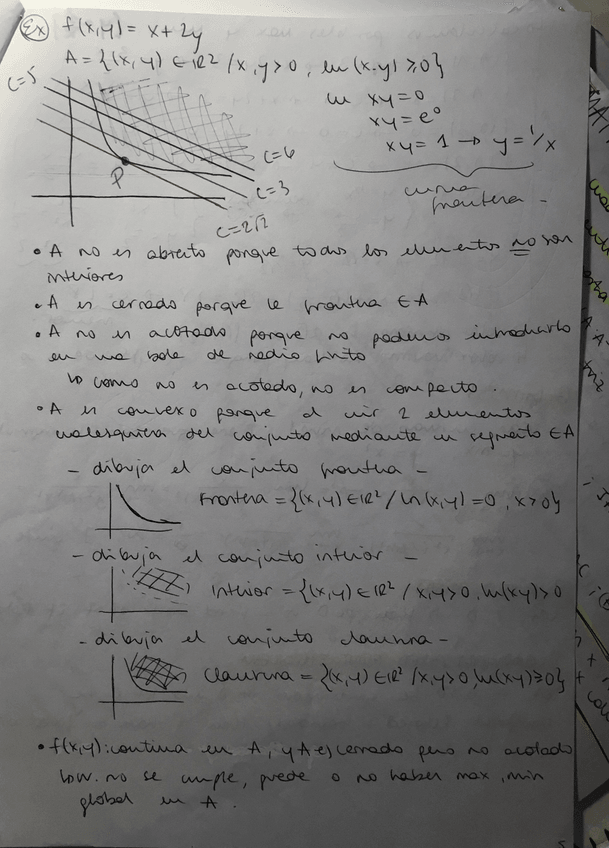 Ex f(x,y) = x + 2y
A = {(x,y) ∈ ℝ² / x,y > 0, ln(x·y) ≥ 0}
c=5
ln xy = 0
xy = e⁰
xy = 1 → y = 1/x
P
c=6
c=3
c=2√2
curva
frontera -
• A no es abierto porque todos los elementos no son
interiores
• A es cerrado porque la frontera ∈ A
• A no es acotado porque no podemos introducirlo
en una bola de radio finito
↳ como no es acotado, no es compacto.
• A es convexo porque al unir 2 elementos
cualesquiera del conjunto mediante un segmento ∈ A
- dibuja el conjunto frontera -
Frontera = {(x,y) ∈ ℝ² / ln(x,y) = 0, x > 0}
- dibuja el conjunto interior -
Interior = {(x,y) ∈ ℝ² / x,y > 0, ln(xy) > 0
- dibuja el conjunto clausura -
Clausura = {(x,y) ∈ ℝ² / x,y > 0, ln(xy) ≥ 0}
• f(x,y): continua en A, y A es cerrado pero no acotado
no se cumple, puede o no haber max, min
global en A.